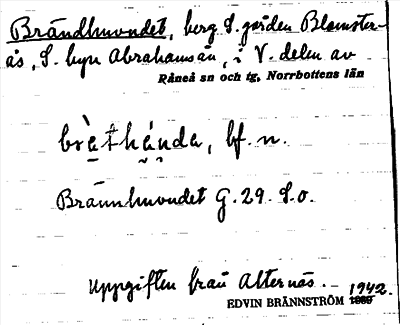 Brändhuvudet, berg S. gården Blomster-
ås, S. byn Abrahamsån, i V. delen av
Råneå sn och tg, Norrbottens län
brà̤thá̤nda, bf. n.
Brännhuvudet G. 29. S.o.
Uppgiften från Alternäs. – 1942.
EDVIN BRÄNNSTRÖM